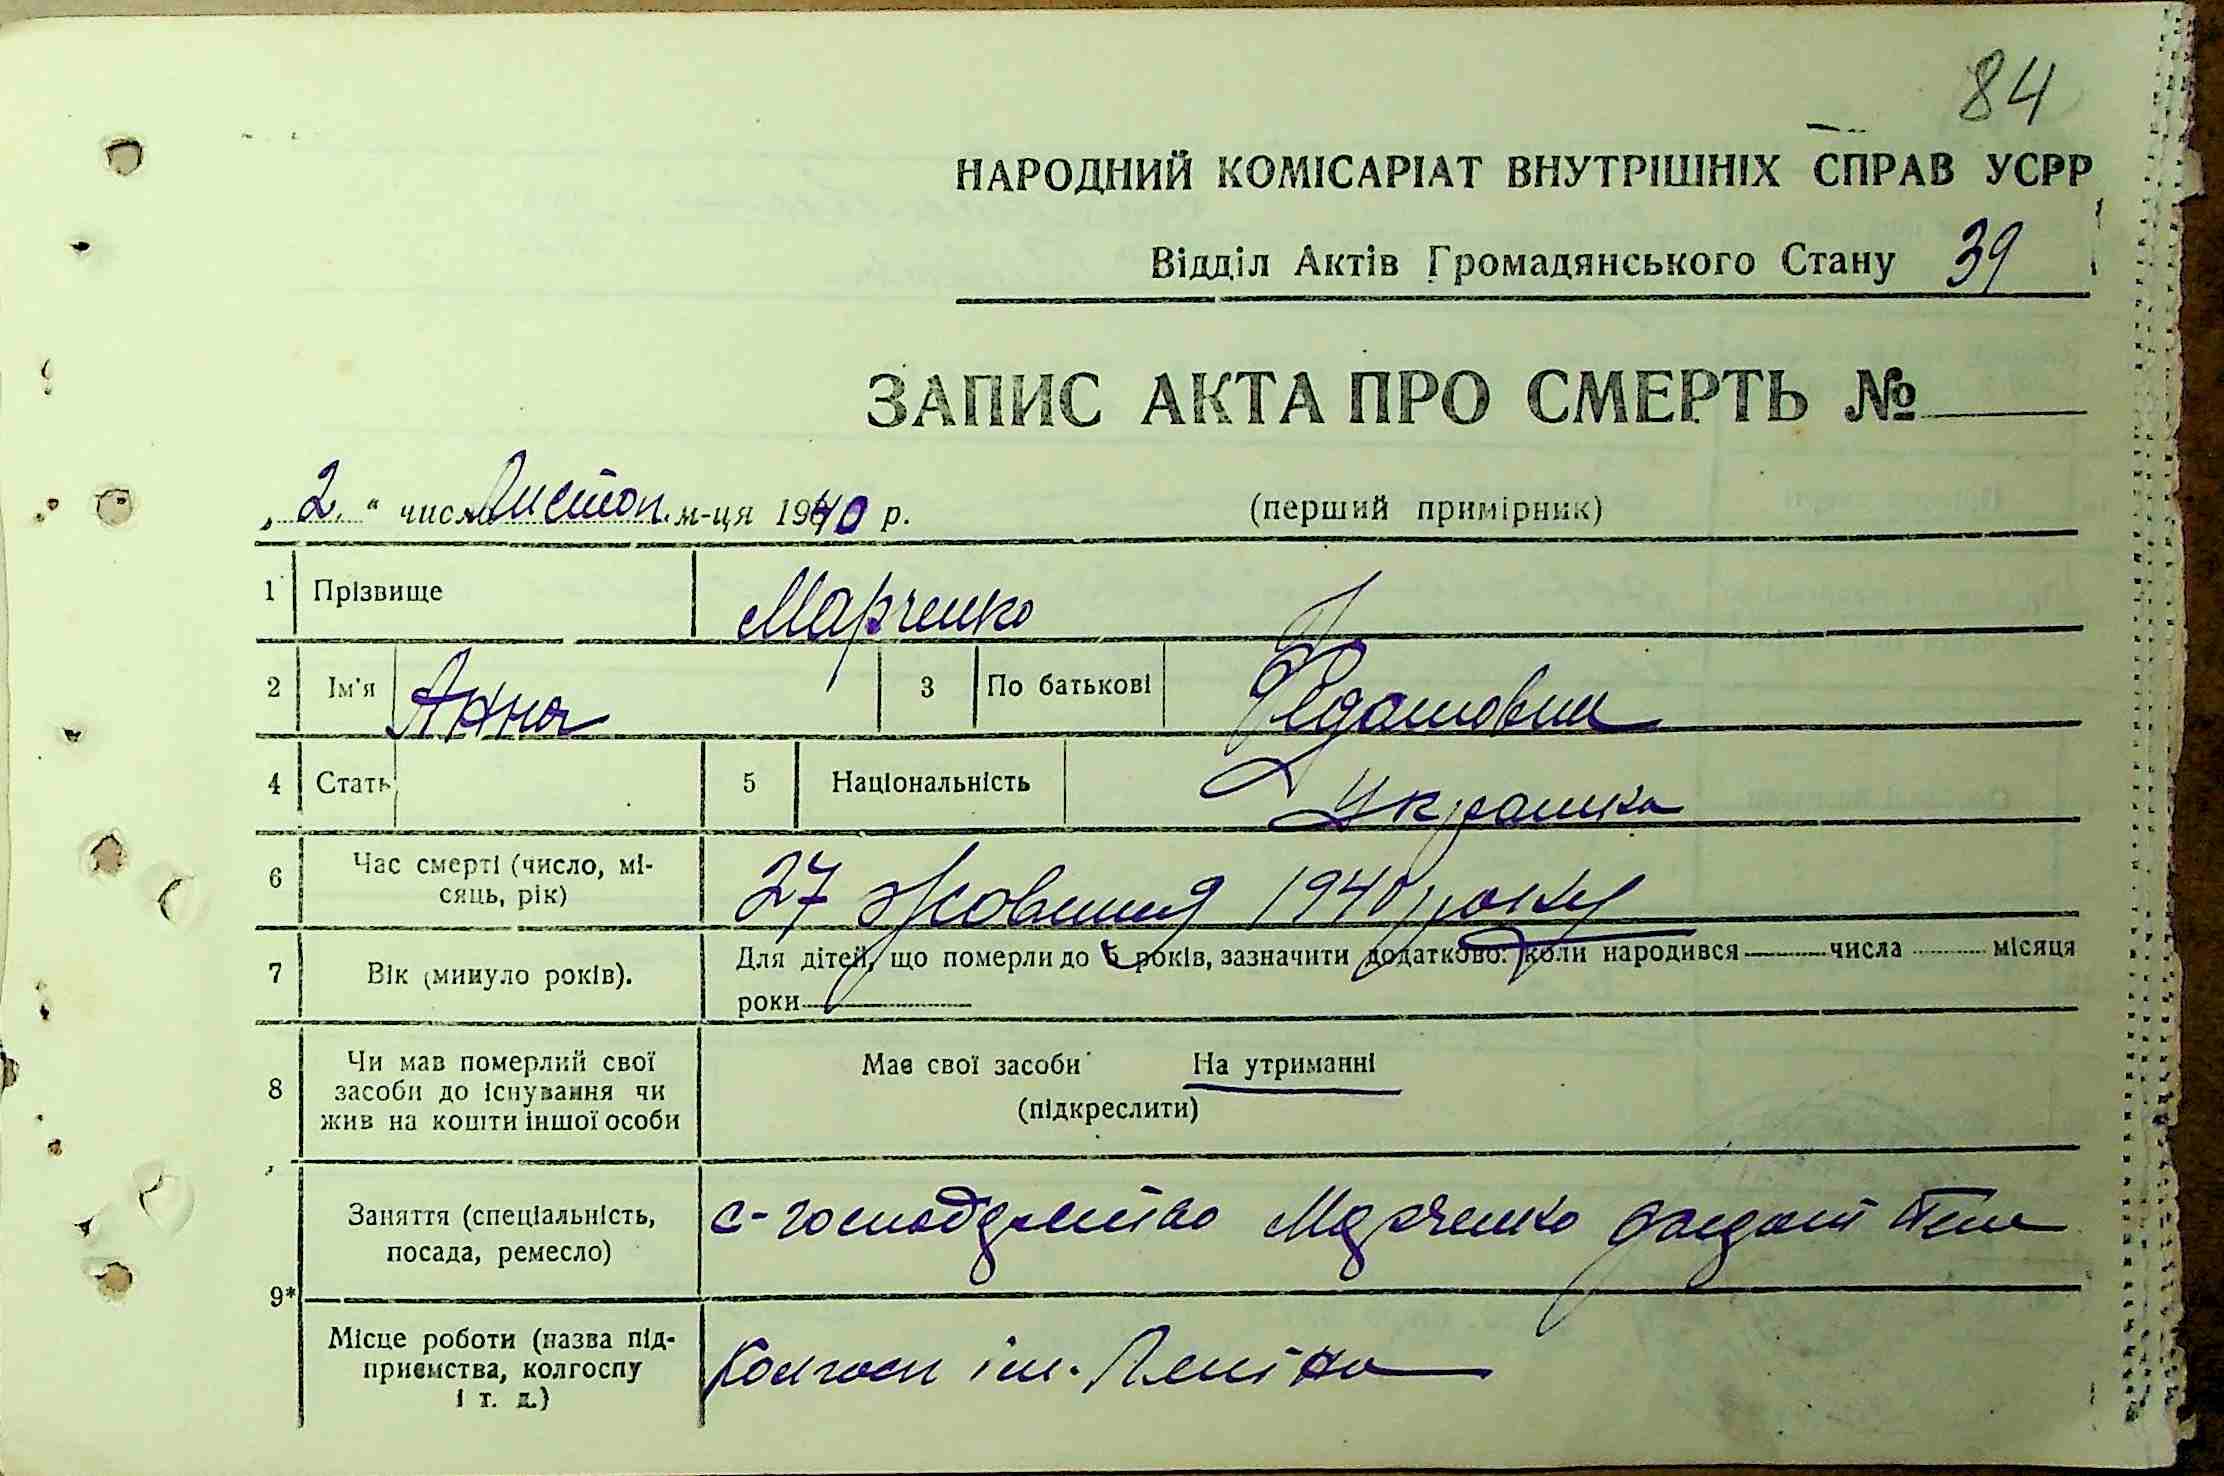 84
НАРОДНИЙ КОМІСАРІАТ ВНУТРІШНІХ СПРАВ УСРР
Відділ Актів Громадянського Стану 39
ЗАПИС АКТА ПРО СМЕРТЬ №
„ 2 “ числа Листоп. м-ця 1940 р. (перший примірник)
1 Прізвище Марченко
2 Ім'я Анна 3 По батькові
4 Стать 5 Національність Українка
6 Час смерті (число, мі-
сяць, рік) 27 Жовтня 1940 року
7 Вік (минуло років). Для дітей, що померли до 5 років, зазначити додатково: коли народився числа місяця
роки
8 Чи мав померлий свої
засоби до існування чи
жив на кошти іншої особи
Має свої засоби На утриманні
(підкреслити)
Заняття (спеціальність,
посада, ремесло) с-господарство Марченко
9*
Місце роботи (назва під-
приємства, колгоспу
і т. д.) Колгосп ім. Леніна